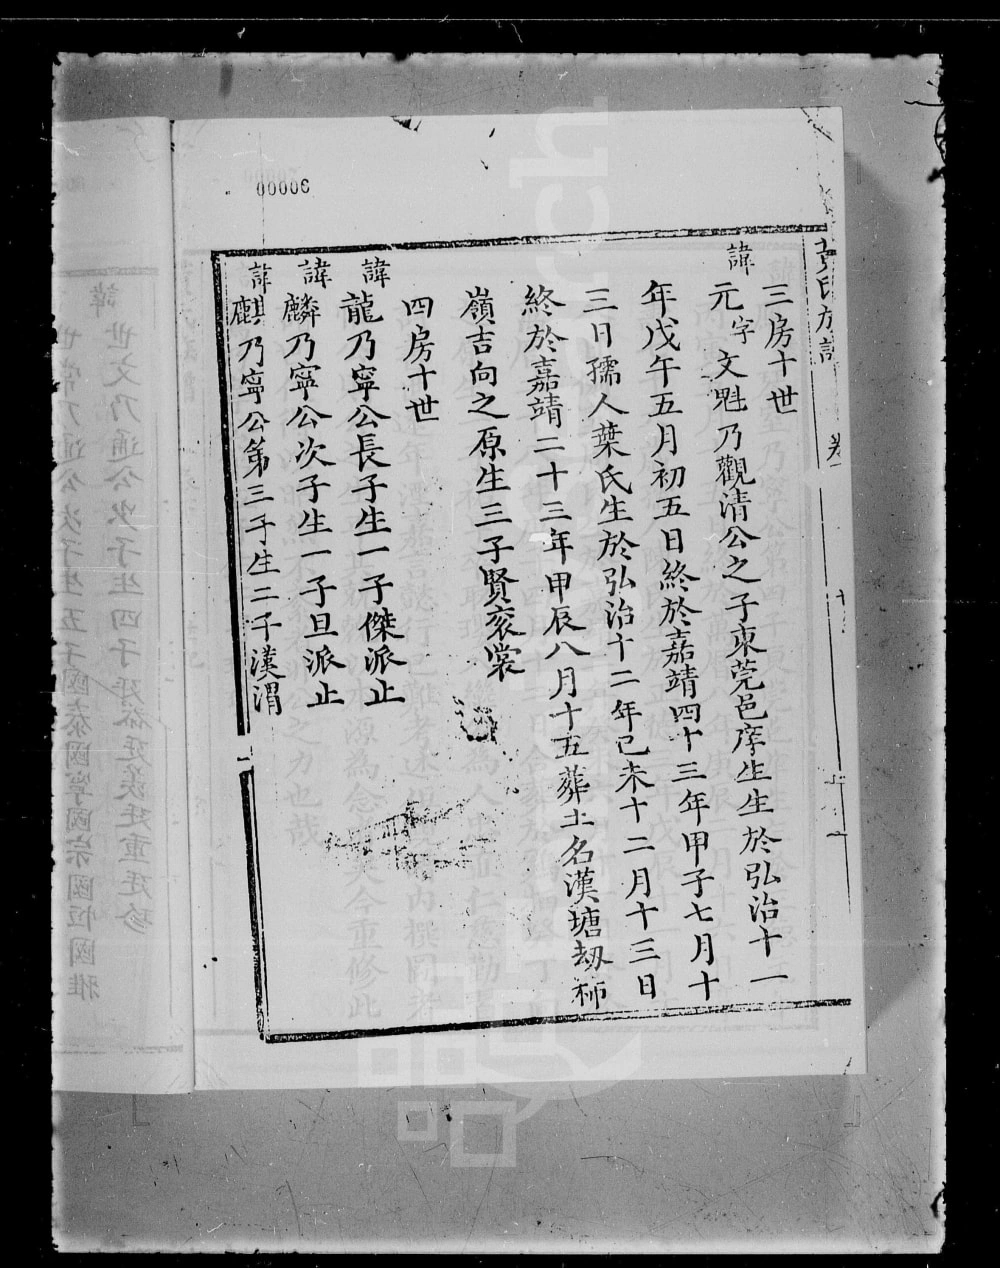 00006
三房十世
諱元字文魁乃觀清公之子東莞邑庠生生於弘治十一
年戊午五月初五日終於嘉靖四十三年甲子七月十
三日孺人葉氏生於弘治十二年己未十二月十三日
終於嘉靖二十三年甲辰八月十五葬土名漢塘刼柿
嶺吉向之原生三子賢袞裳
四房十世
諱龍乃寧公長子生一子傑派止
諱麟乃寧公次子生一子旦派止
諱麒乃寧公第三子生二子漢渭